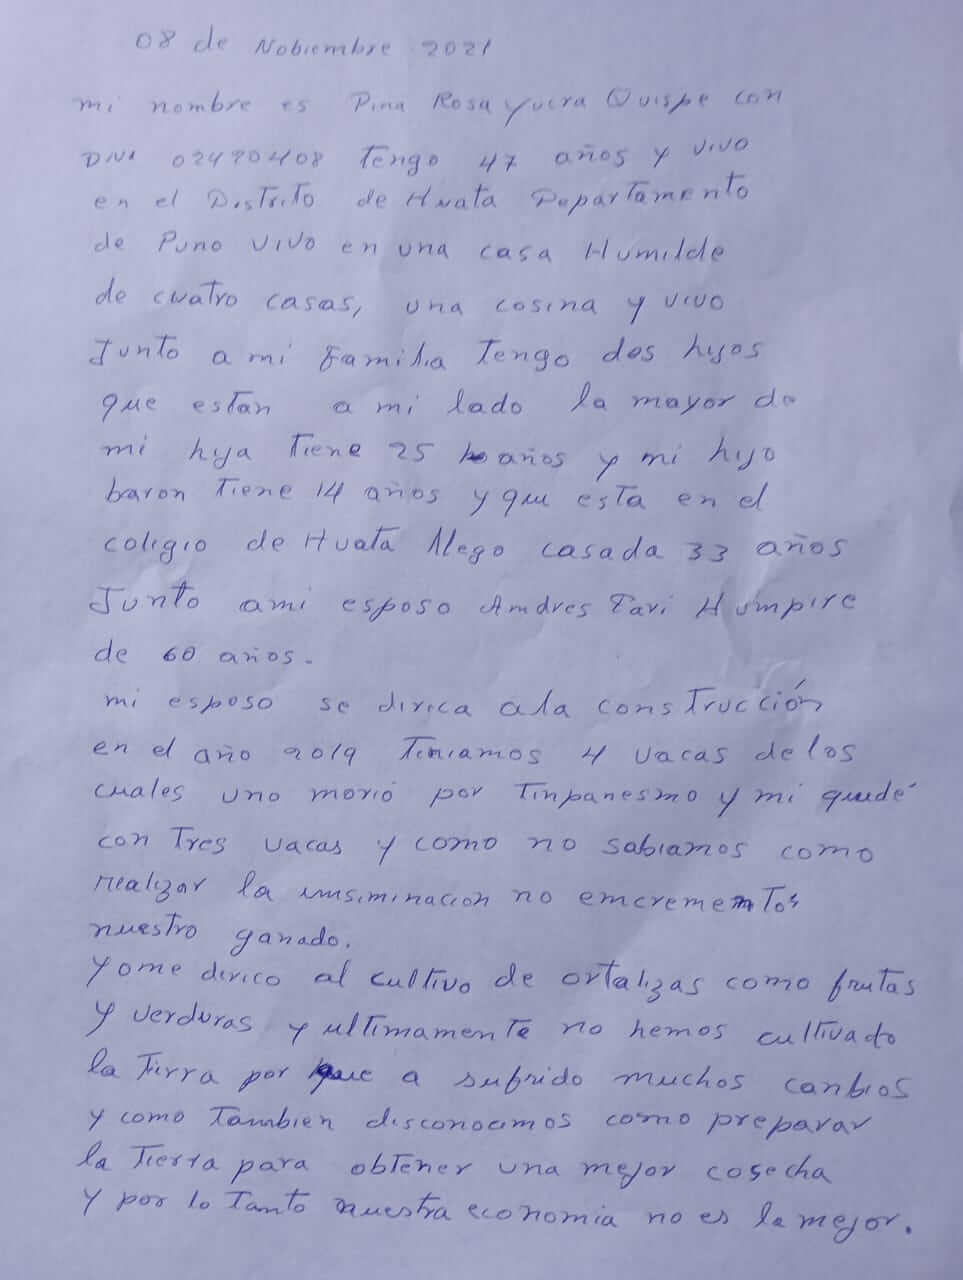 08 de Nobiembre 2021
mi nombre es Pina Rosa Yucra Quispe con
DNI 02490408 Tengo 47 años y vivo
en el Distrito de Huata Departamento
de Puno vivo en una casa Humilde
de cuatro casas, una cosina y vivo
Junto a mi Familia Tengo dos hijos
que estan a mi lado la mayor de
mi hija Tiene 25 años y mi hijo
baron Tiene 14 años y que esta en el
coligio de Huata llego casada 33 años
Junto ami esposo Andres Pari Humpire
de 60 años.
mi esposo se dirica ala construcción
en el año 2019 Teniamos 4 vacas de los
cuales uno morió por Tinpanesmo y mi quedé
con Tres vacas y como no sabiamos como
realizar la imsiminacion no emcrementos
nuestro ganado.
yome dirico al cultivo de ortalizas como frutas
y verduras y ultimamente no hemos cultivado
la Tirra por que a sufrido muchos canbios
y como Tambien disconocimos como preparar
la Tierra para obtener una mejor cosecha
y por lo Tanto nuestra economia no es la mejor.